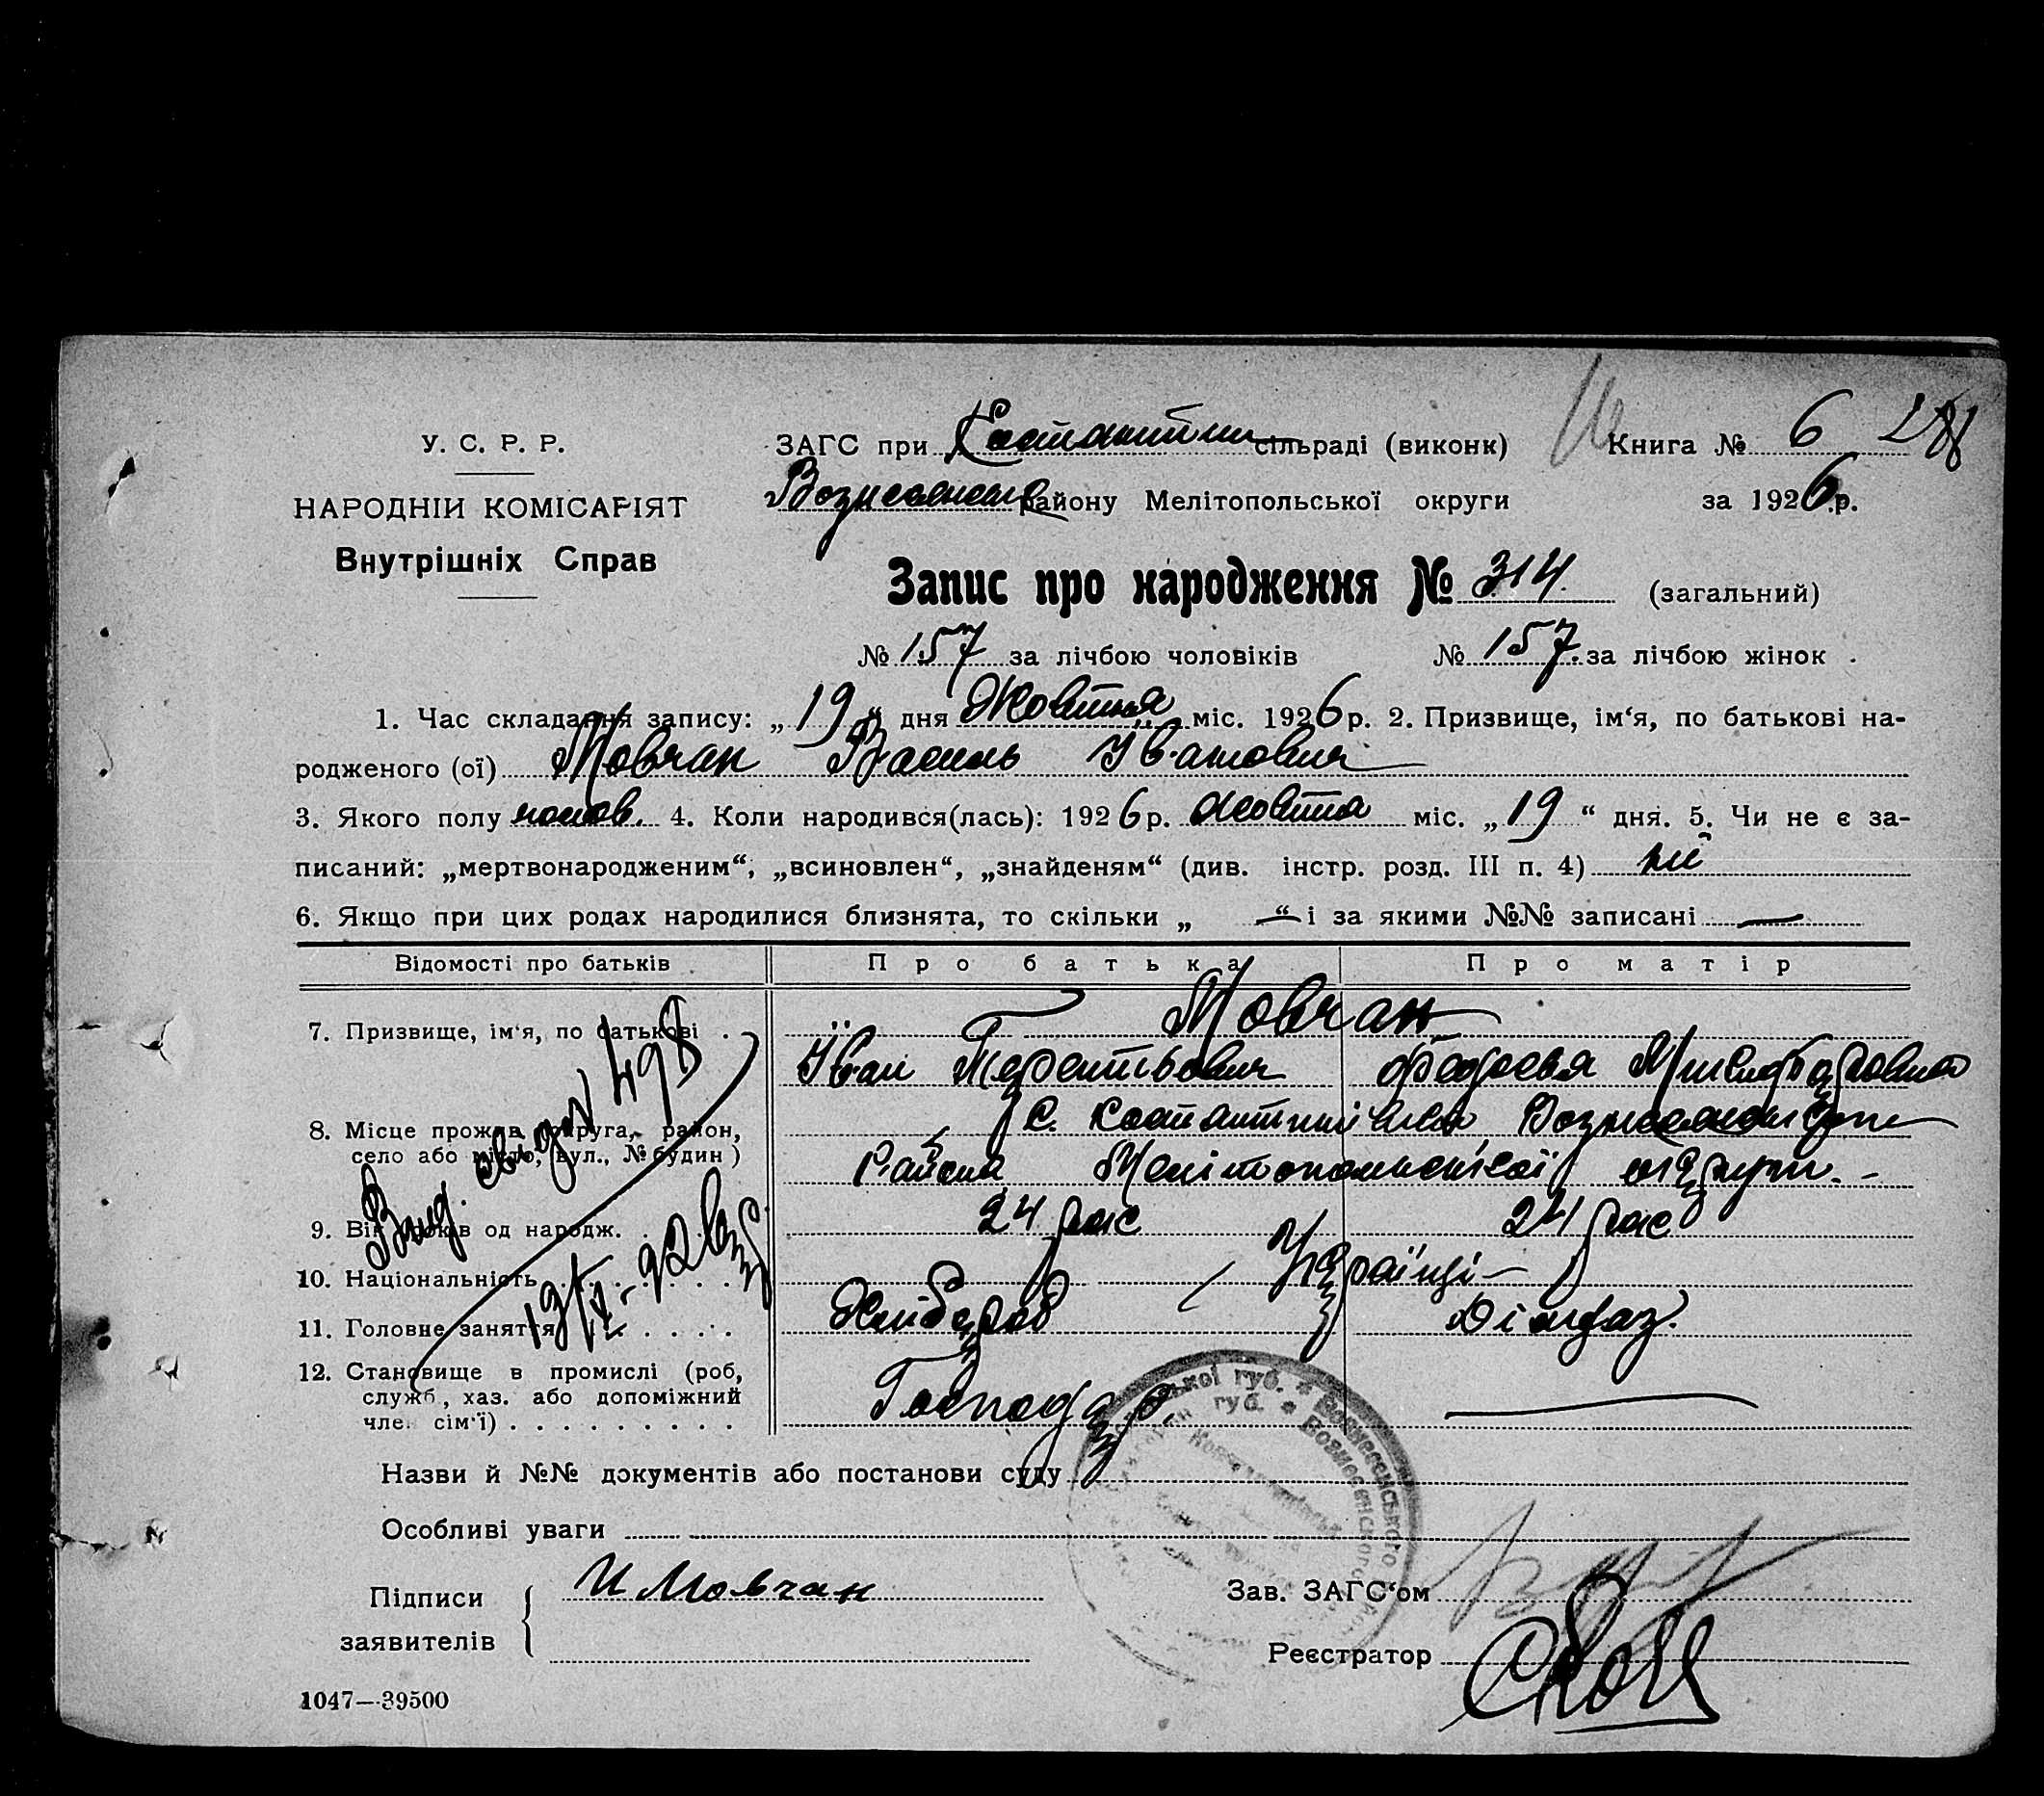 У. С. Р. Р.
НАРОДНІЙ КОМІСАРІЯТ
Внутрішніх Справ
ЗАГС при сільраді (виконк)
Книга № 6
району Мелітопольської округи
за 1926 р.
Запис про народження № 314. (загальний)
№ 157 за лічбою чоловіків № 157. за лічбою жінок .
1. Час складання запису: „ 19 “ дня Жовтня міс. 1926 р. 2. Призвище, ім‘я, по батькові на-
родженого (ої) Мовчан Василь Іванович
3. Якого полу 4. Коли народився(лась): 1926 р. Жовтня міс. „ 19 “ дня. 5. Чи не є за-
писаний: „мертвонародженим“, „всиновлен“, „знайденям“ (див. інстр. розд. III п. 4) ні
6. Якщо при цих родах народилися близнята, то скільки „ — “ і за якими №№ записані —
Відомості про батьків Про батька Про матір
7. Призвище, ім‘я, по батькові . Мовчан
Іван Терентьович
8. Місце прожив. (округа, район,
село або місто, вул., № будин )
с.
района Мелітопольської округи. -
9. Вік років од народж. 24 рок 24 рок
10. Національність Українці —
11. Головне заняття Хлібороб
12. Становище в промислі (роб,
служб, хаз. або допоміжний
чле. сім‘ї) . . . . . . . . . Господар. —
Вид. 498
Назви й №№ документів або постанови суду
Особливі уваги
Підписи
заявителів
И Мовчан
Зав. ЗАГС‘ом
Реєстратор
1047—39500